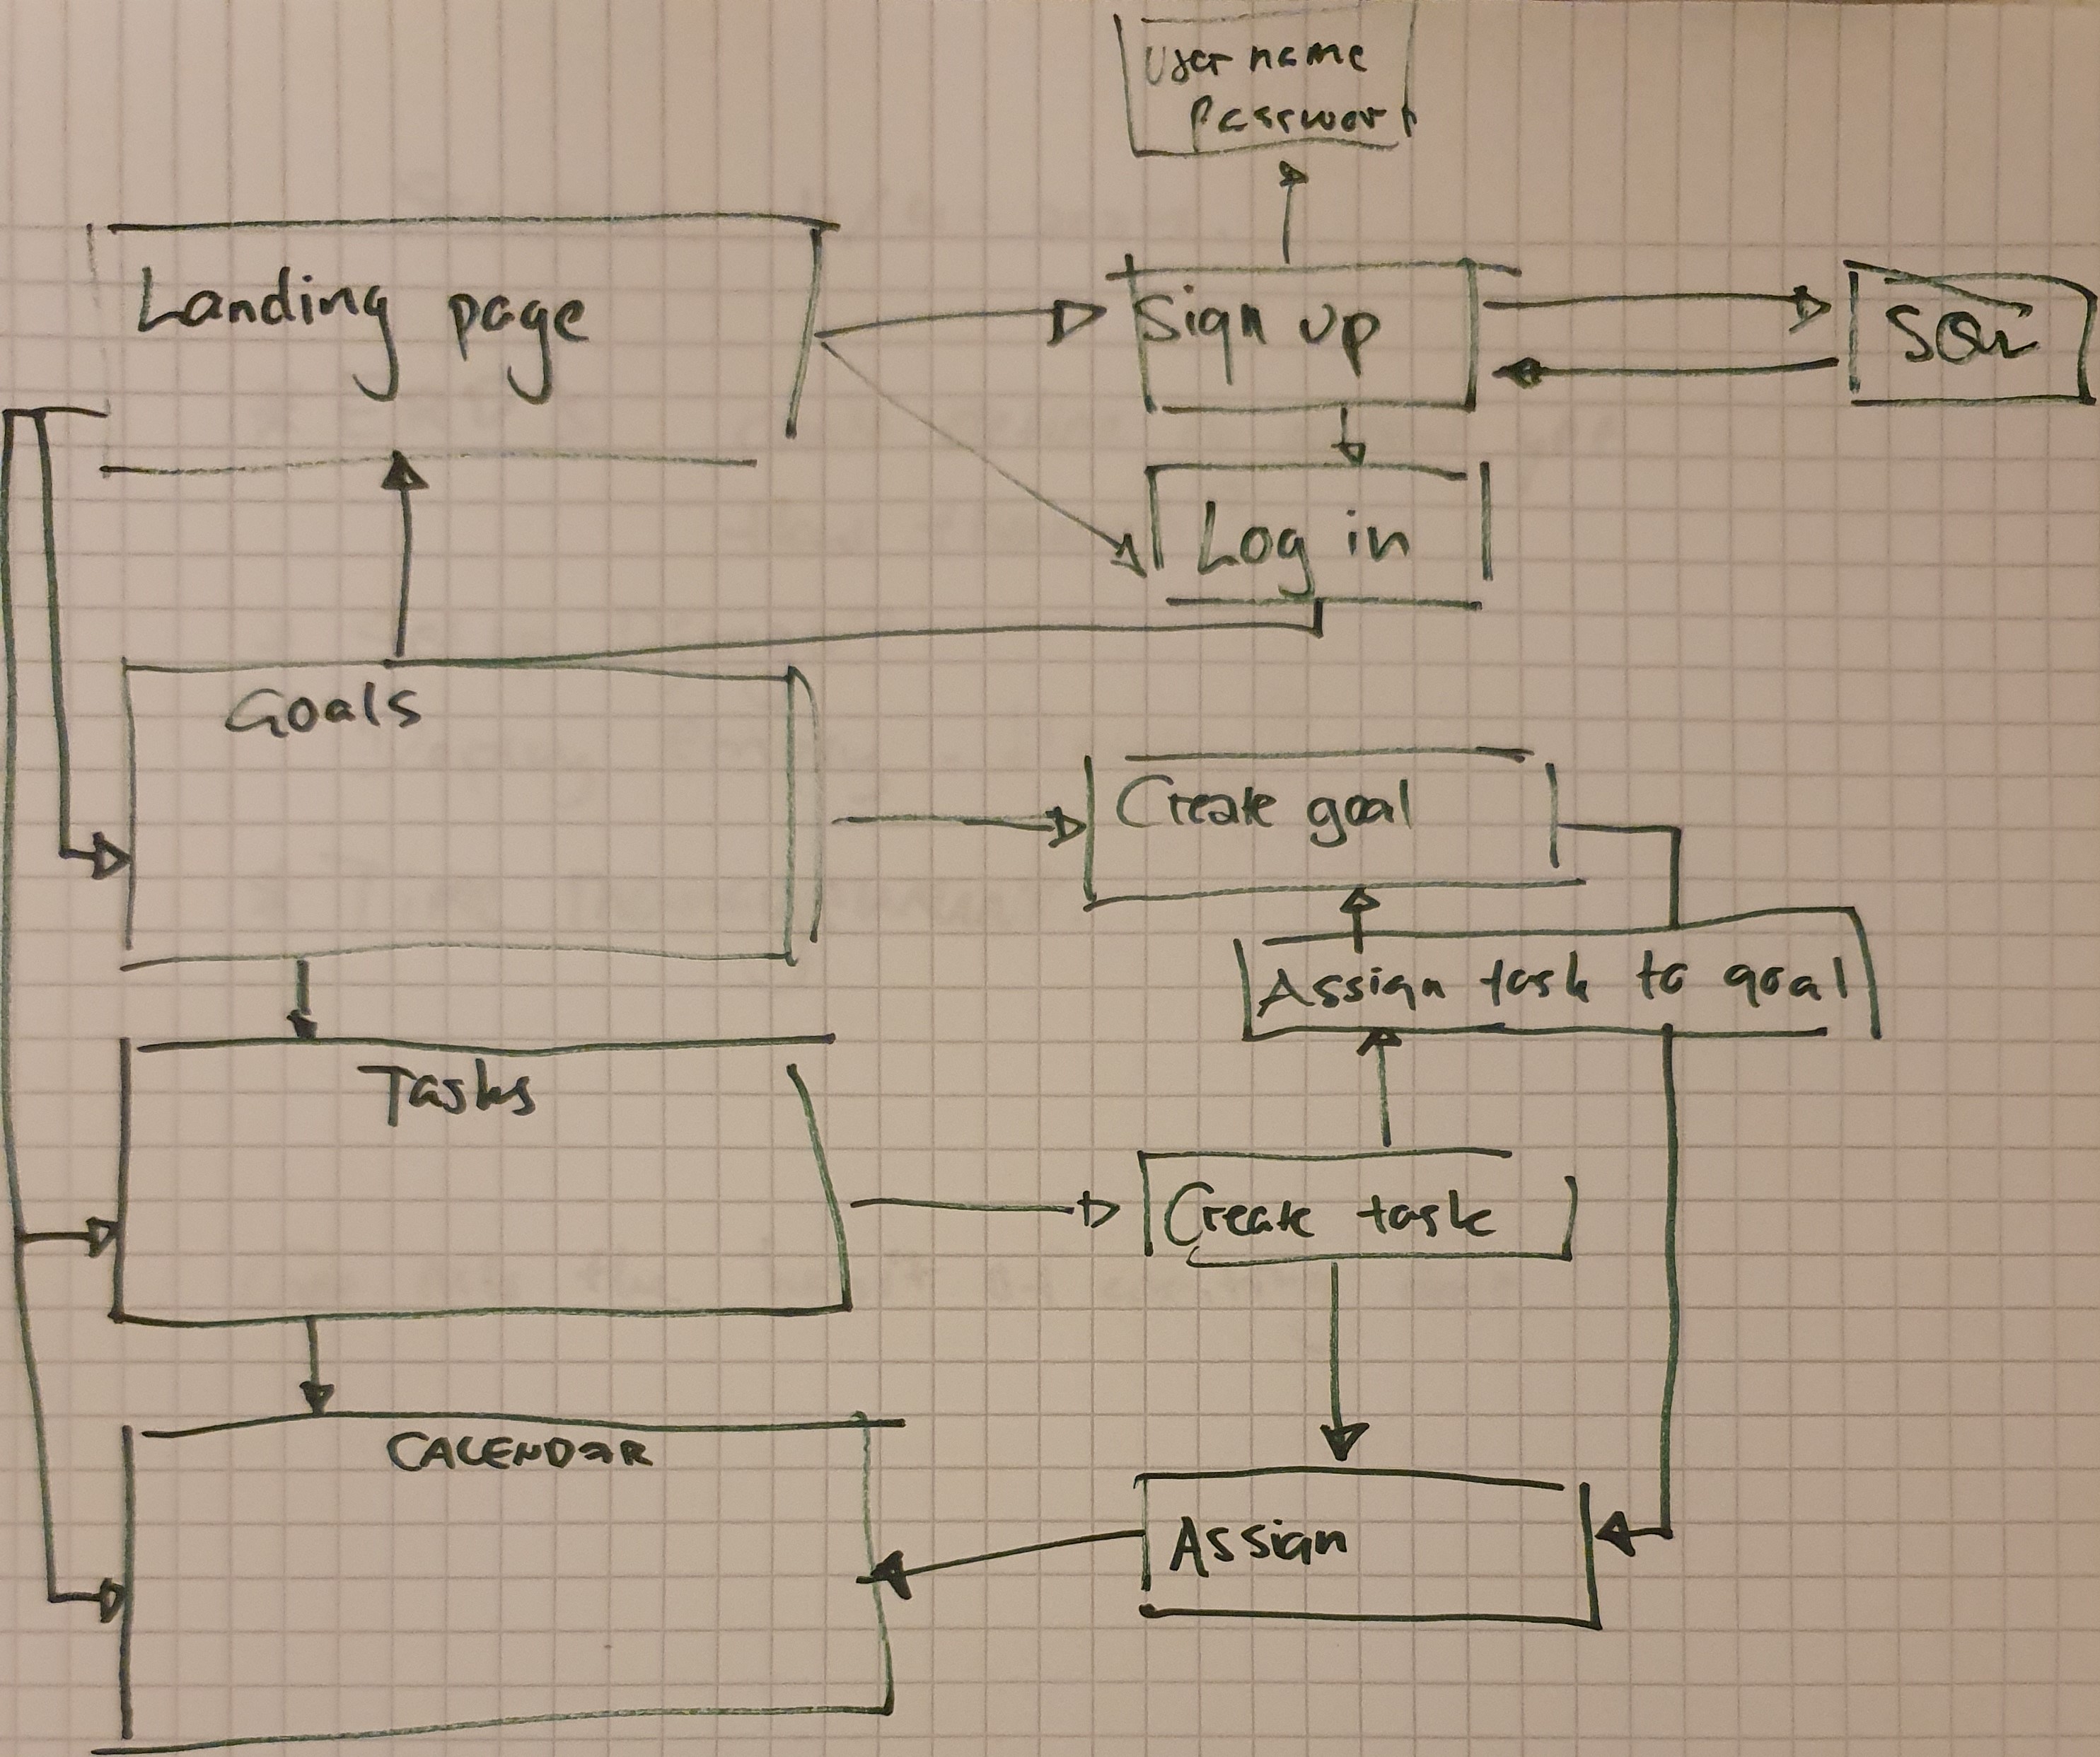 User name
Passwort
Landing page
Sign up
SQL
Log in
Goals
Create goal
Assign task to goal
Tasks
Create task
CALENDAR
Assign